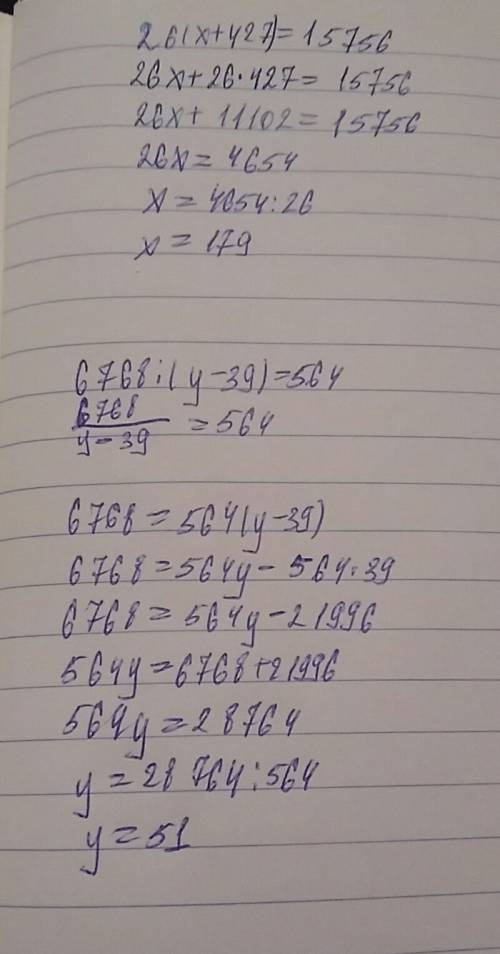 26(x+427)=15756
26x+26·427=15756
26x+11102=15756
26x=4654
x=4654:26
x=179
6768:(y-39)=564
6768
y-39
=564
6768=564(y-39)
6768=564y-564·39
6768=564y-21996
564y=6768+21996
564y=28764
y=28764:564
y=51